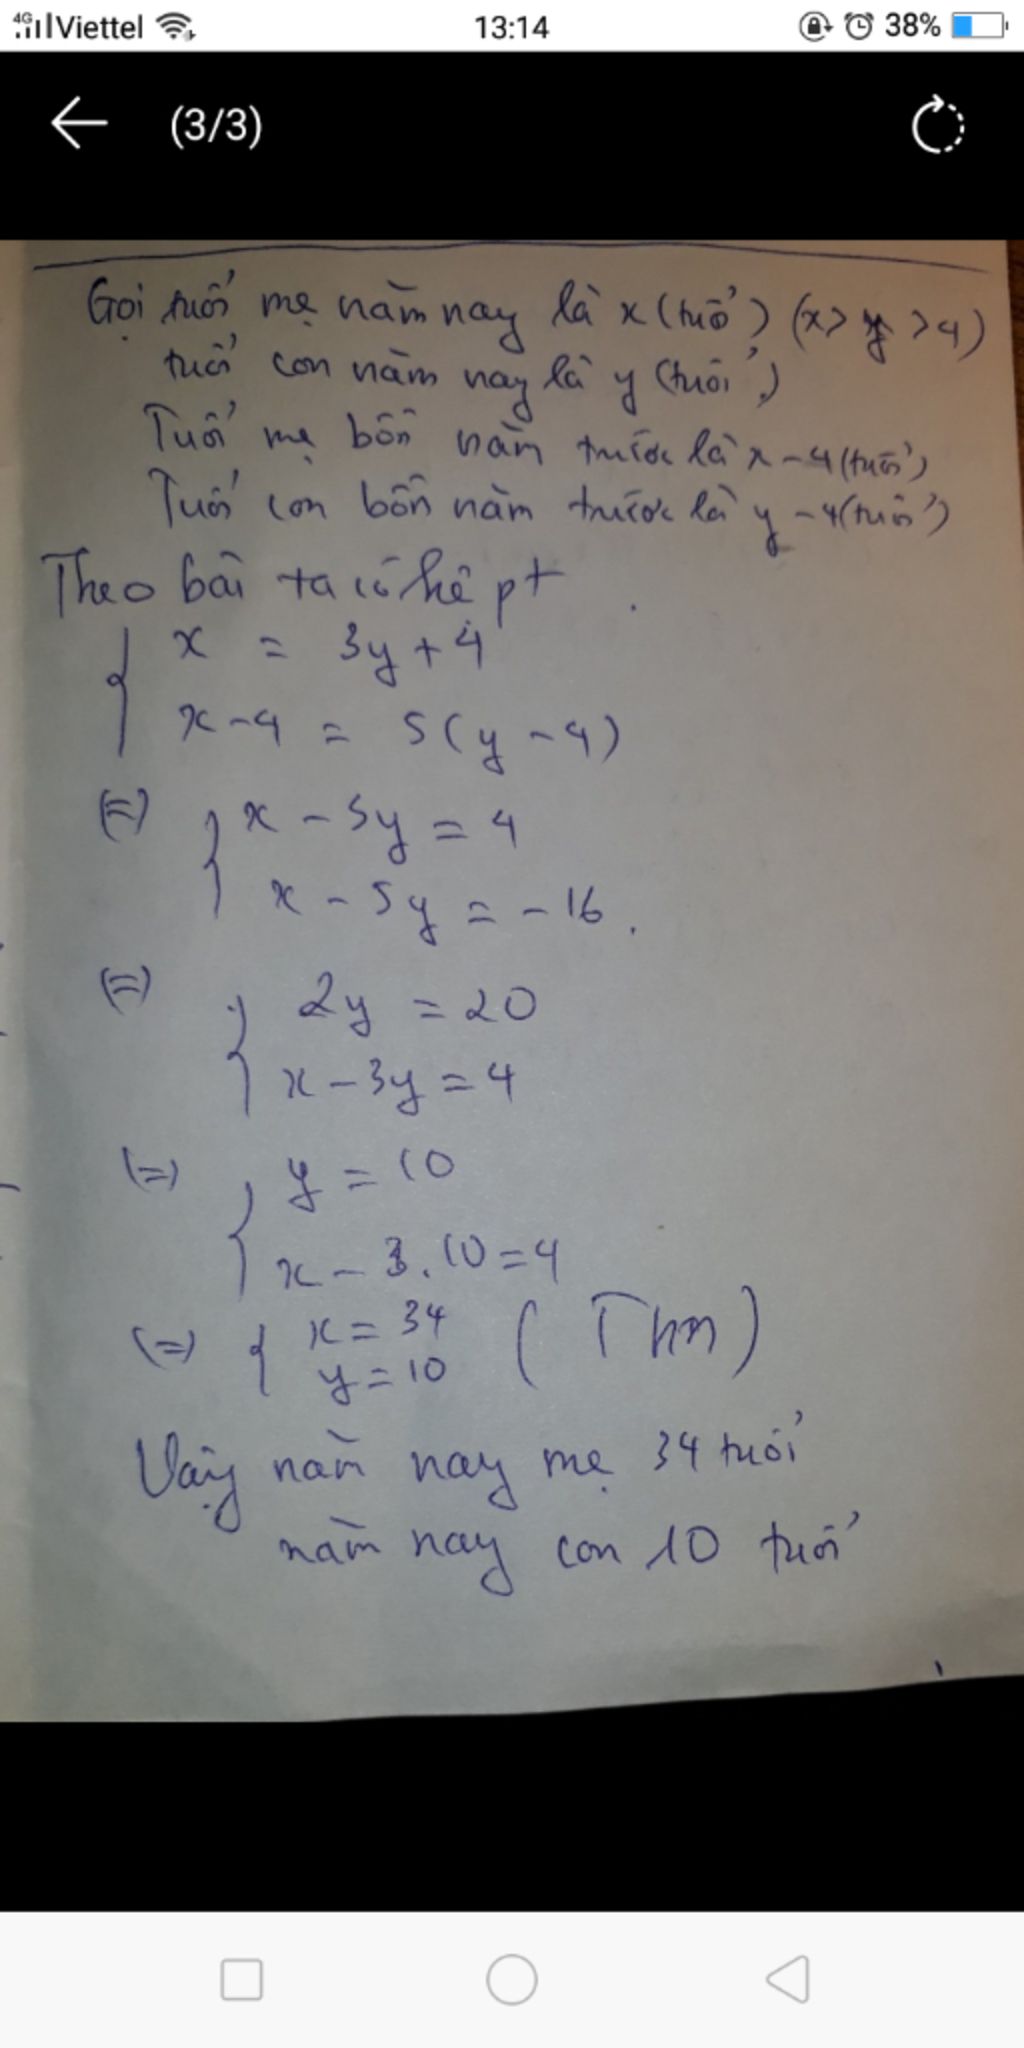 4G Viettel 13:14 38%
(3/3)
Gọi tuổi mẹ năm nay là x (tuổi) (x > y > 4)
tuổi con năm nay là y (tuổi)
Tuổi mẹ bốn năm trước là x - 4 (tuổi)
Tuổi con bốn năm trước là y - 4 (tuổi)
Theo bài ta có hệ pt
{ x = 3y + 4
x - 4 = 5(y - 4)
(=) { x - 3y = 4
x - 5y = -16.
(=) { 2y = 20
x - 3y = 4
(=) { y = 10
x - 3.10 = 4
(=) { x = 34 (Thm)
y = 10
Vậy năm nay mẹ 34 tuổi
năm nay con 10 tuổi